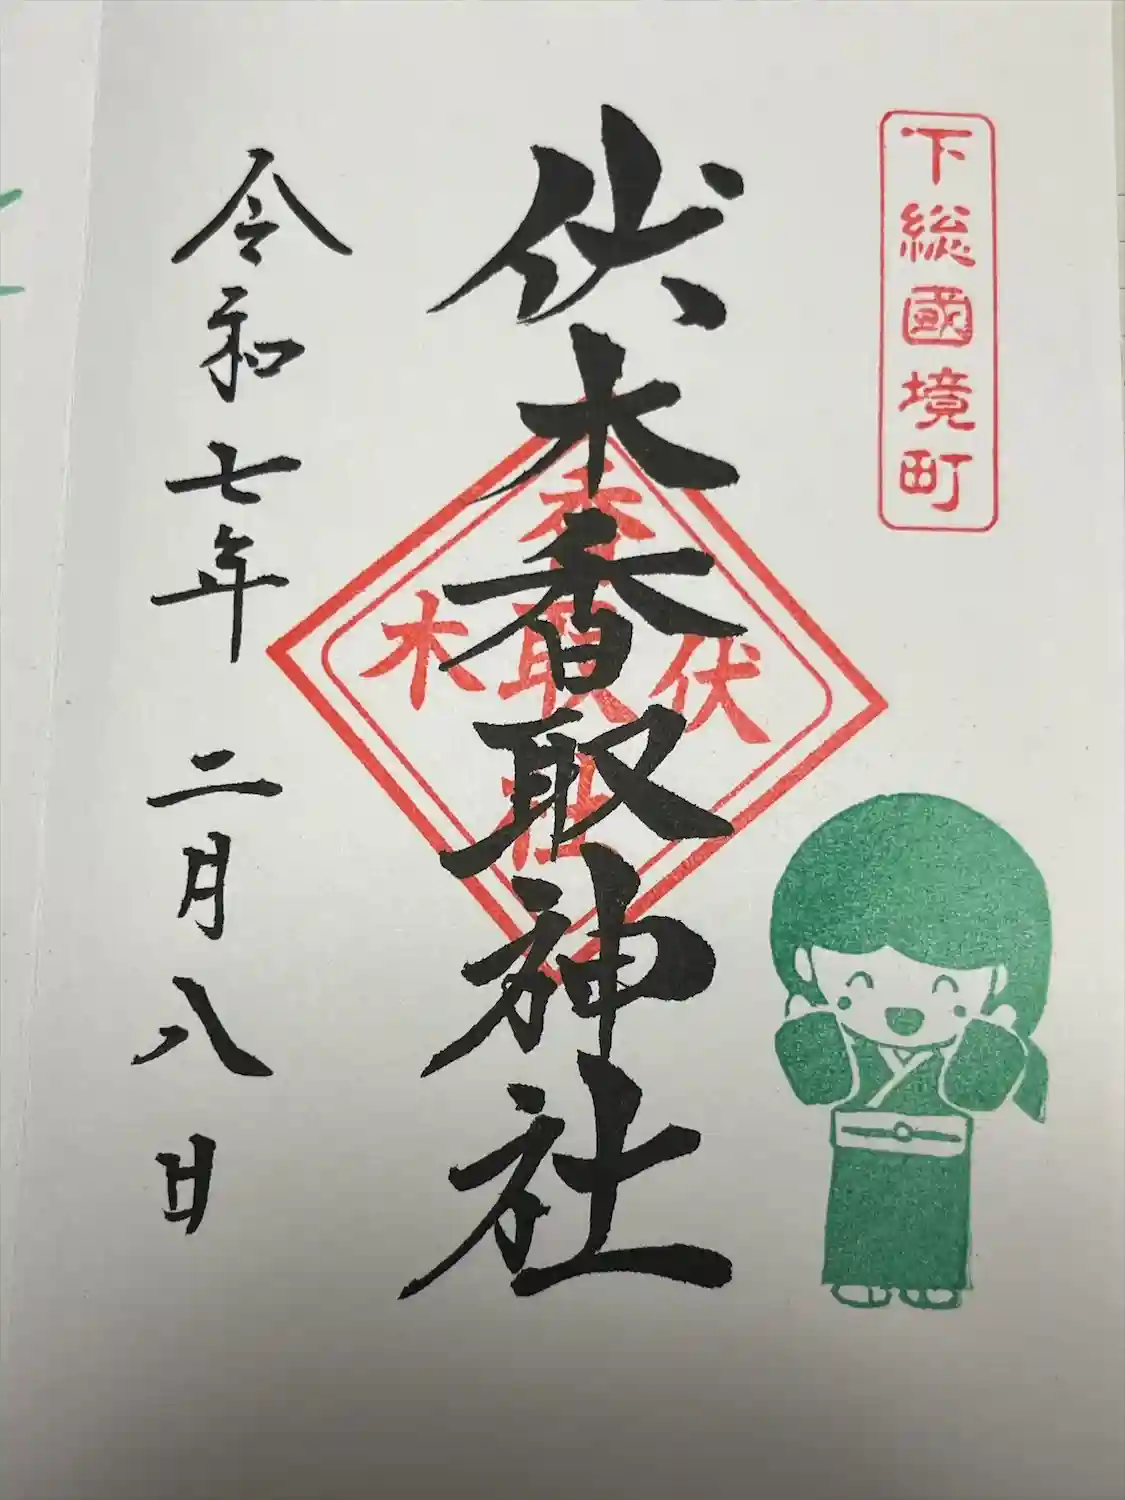 下総國境町
伏木香取神社
香
伏取木
社
令和七年 二月八日